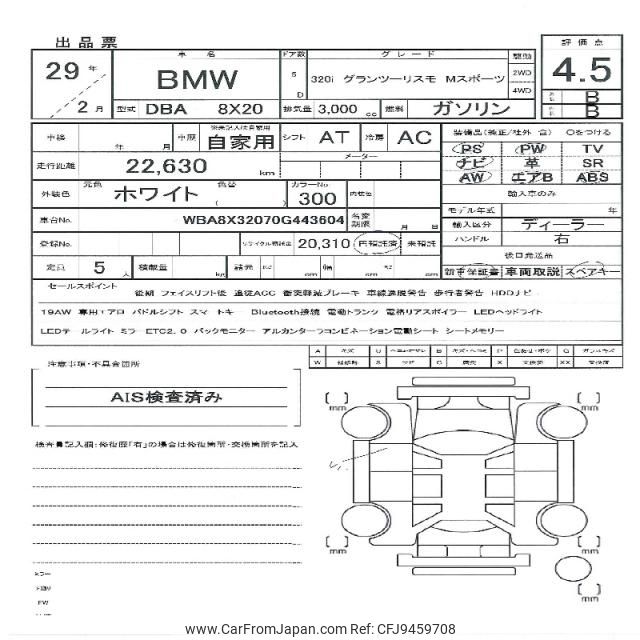 出品票
車名 ドア数 グレード 駆動 評価点
29年 BMW 5 D 320i グランツーリスモ Mスポーツ 2WD 4WD 4.5
2月 型式 DBA 8X20 排気量 3,000 cc 燃料 ガソリン B B
車検 年 月 車歴 自家用 シフト AT 冷房 AC 装備品(純正/社外 含) ○をつける
PS PW TV
走行距離 22,630 km メーター ナビ 革 SR
AW エアB ABS
外装色 元色 ホワイト 色替 ( カラーNo 300 内装色 輸入車のみ
モデル年式 年
車台No. WBA8X32070G443604 名変期限 月 日 輸入区分 ディーラー
登録No. リサイクル預託金 20,310 円預託済 未預託 ハンドル 右
後日発送品
定員 5人 積載量 kg 諸元 幅 cm 高 新車保証書 車両取説 スペアキー
セールスポイント
後期 フェイスリフト後 追従ACC 衝突軽減ブレーキ 車線逸脱警告 歩行者警告 HDDナビ
19AW 専用エアロ パドルシフト スマートキー Bluetooth接続 電動トランク 電格リアスポイラー LEDヘッドライト
LEDテールライト ミラーETC2.0 バックモニター アルカンターラコンビネーション電動シート シートメモリー
注意事項・不具合箇所
AIS検査済み
検査員記入欄:修復歴「有」の場合は修復箇所・交換箇所を記入
mm mm
mm mm
mm
www.CarFromJapan.com Ref: CFJ9459708